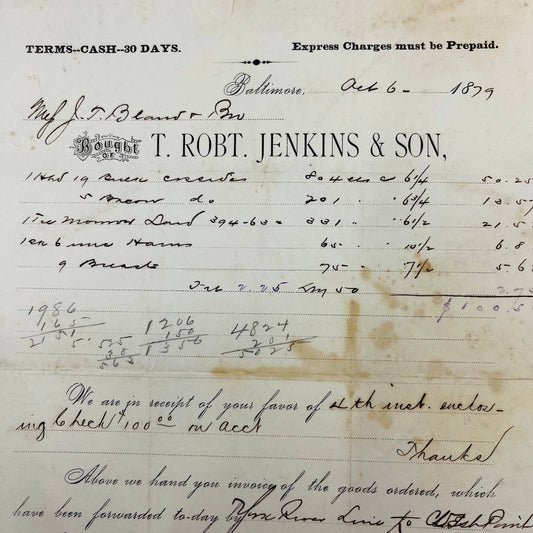 TERMS--CASH--30 DAYS. Express Charges must be Prepaid.
Baltimore, Oct 6 - 1879
Mess J. T. Bland & Bro
Bought OF T. ROBT. JENKINS & SON,
1 Hhd 19 Bulk 804 6 1/4 50.25
5 Bacon do. 201 " 6 3/4 13.57
1 Tce Lard 394-63 = 331 " 6 1/2 21.5
6 Hams 65 " 10 1/2 6.8
9 Breasts 75 " 7 1/2 5.6
2.25 50 2.75
$100.5
1986 1206 4824
165 525 150 201
2151 30 1356 5025
5. 565
We are in receipt of your favor of 4th inst. enclos-
ing Check $100.00 on acct
Thanks
Above we hand you invoice of the goods ordered, which
have been forwarded to-day by York River Line to West Point